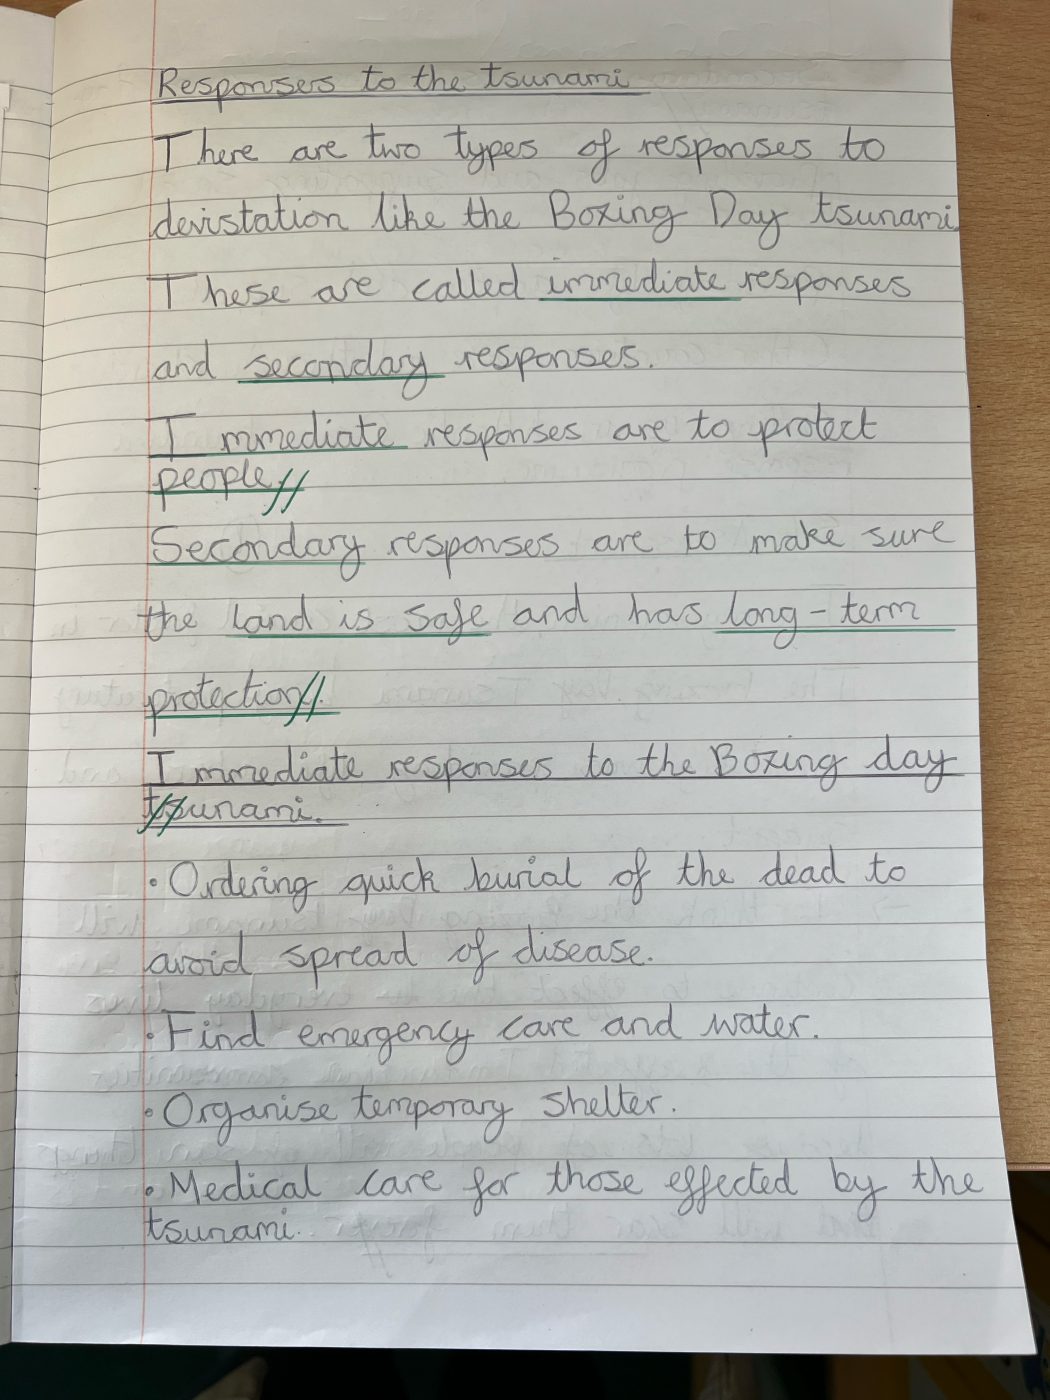 Responsers to the tsunami
There are two types of responses to
devistation like the Boxing Day tsunami.
These are called immediate responses
and secondary responses.
Immediate responses are to protect
people//
Secondary responses are to make sure
the land is safe and has long-term
protection//.
Immediate responses to the Boxing day
tsunami.
• Ordering quick burial of the dead to
avoid spread of disease.
• Find emergency care and water.
• Organise temporary shelter.
• Medical care for those effected by the
tsunami.